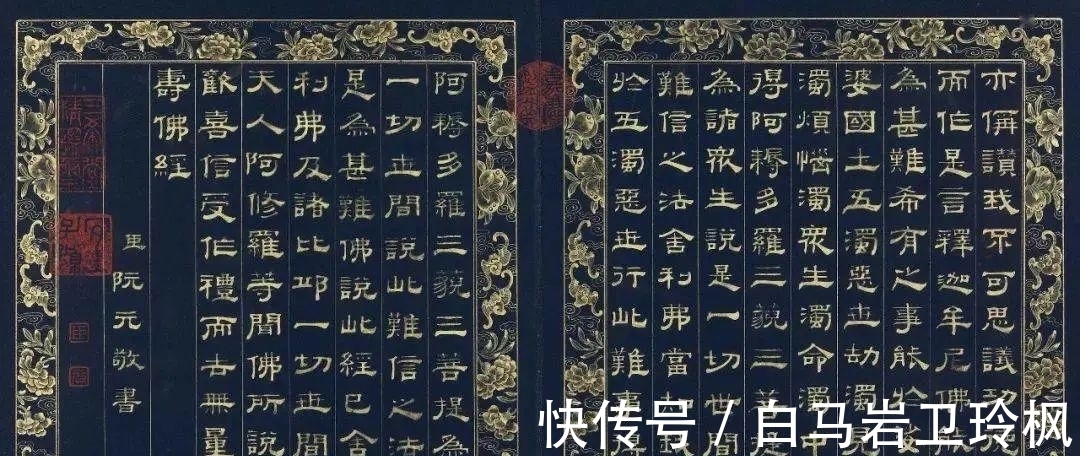 亦偁讚我不可思議功
而作是言釋迦牟尼佛
為甚難希有之事能於
婆國土五濁惡世劫濁見
濁煩惱濁眾生濁命濁中
得阿耨多羅三藐三菩提
為諸眾生說是一切世間
難信之法舍利弗當知
於五濁惡世行此難事
阿耨多羅三藐三菩提為
一切世間說此難信之法
是為甚難佛說此經已舍
利弗及諸比邱一切世間
天人阿修羅等聞佛所說
歡喜信受作禮而去無量
壽佛經
臣阮元敬書
三希堂精鑑璽
宜子孫
快传号／白马岩卫玲枫